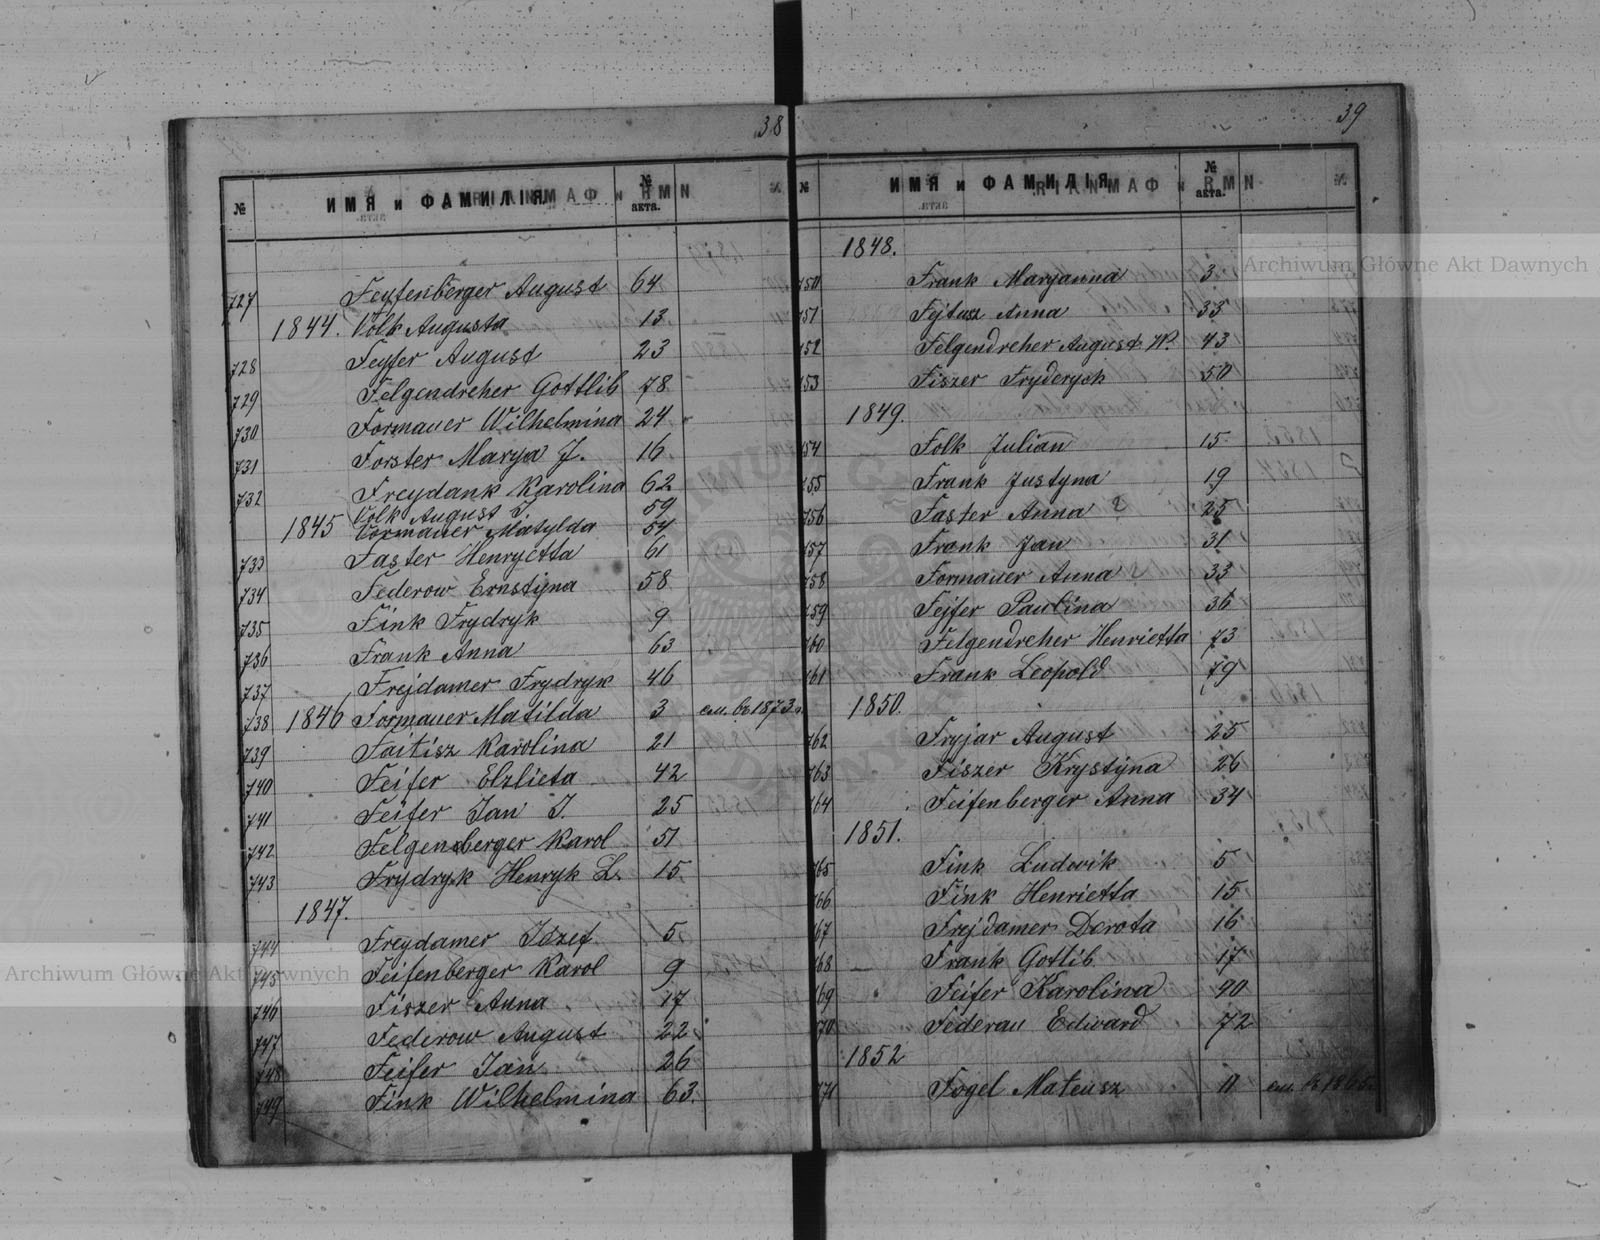 38
№ ИМЯ и ФАМИЛІЯ № акта.
727 Feyfenberger August 64
1844. Volk Augusta 13
728 Feyfer August 23
729 Felgendreher Gottlib 78
730 Formauer Wilhelmina 24
731 Forster Marya J. 16
732 Freydank Karolina 62
Volk August J. 59
1845 Vormauer Matylda 54
733 Faster Henryetta 61
734 Federow Ernstyna 58
735 Fink Frydryk 9
736 Frank Anna 63
737 Frejdamer Frydryk 46
738 1846 Formauer Matilda 3 см. въ 1873 г.
739 Faitisz Karolina 21
740 Feifer Elzlieta 42
741 Feifer Jan J. 25
742 Felgenberger Karol 51
743 Frydryk Henryk L. 15
1847.
744 Freydamer Józef 5
745 Feifenberger Karol 9
746 Fiszer Anna 17
747 Federow August 22
748 Feifer Jan 26
749 Fink Wilhelmina 63.
39
№ ИМЯ и ФАМИЛІЯ № акта.
1848.
750 Frank Maryanna 3
751 Fejtusz Anna 33
752 Felgendreher August W. 43
753 Fiszer Fryderych 50
1849.
754 Folk Julian 15
755 Frank Justyna 19
756 Faster Anna 25
757 Frank Jan 31
758 Formauer Anna 33
759 Fejfer Paulina 36
760 Felgendreher Henrietta 73
761 Frank Leopold 79
1850.
762 Fryjar August 25
763 Fiszer Krystyna 26
764 Feifenberger Anna 34
1851.
765 Fink Ludwik 5
766 Fink Henrietta 15
767 Frejdamer Dorota 16
768 Frank Gotlib 17
769 Feifer Karolina 90
770 Federau Edward 72
1852
771 Fogel Mateusz 11
Archiwum Główne Akt Dawnych
Archiwum Główne Akt Dawnych